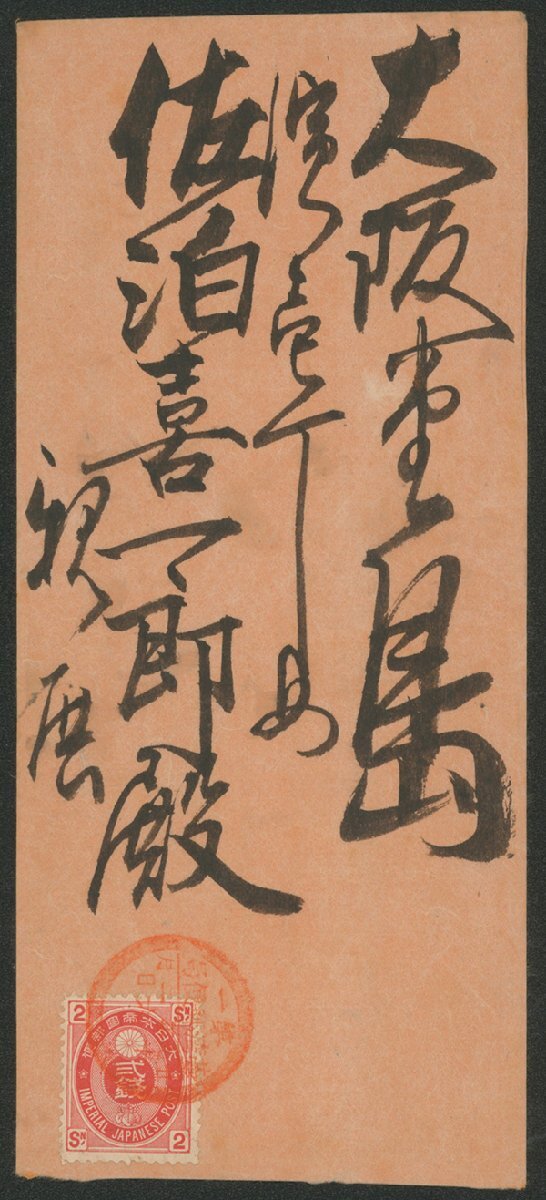 大阪堂島
濱壱丁目
佐泊喜一郎殿
親展
大日本帝國郵便
2 Sn
貳錢
IMPERIAL JAPANESE POST
Sn 2